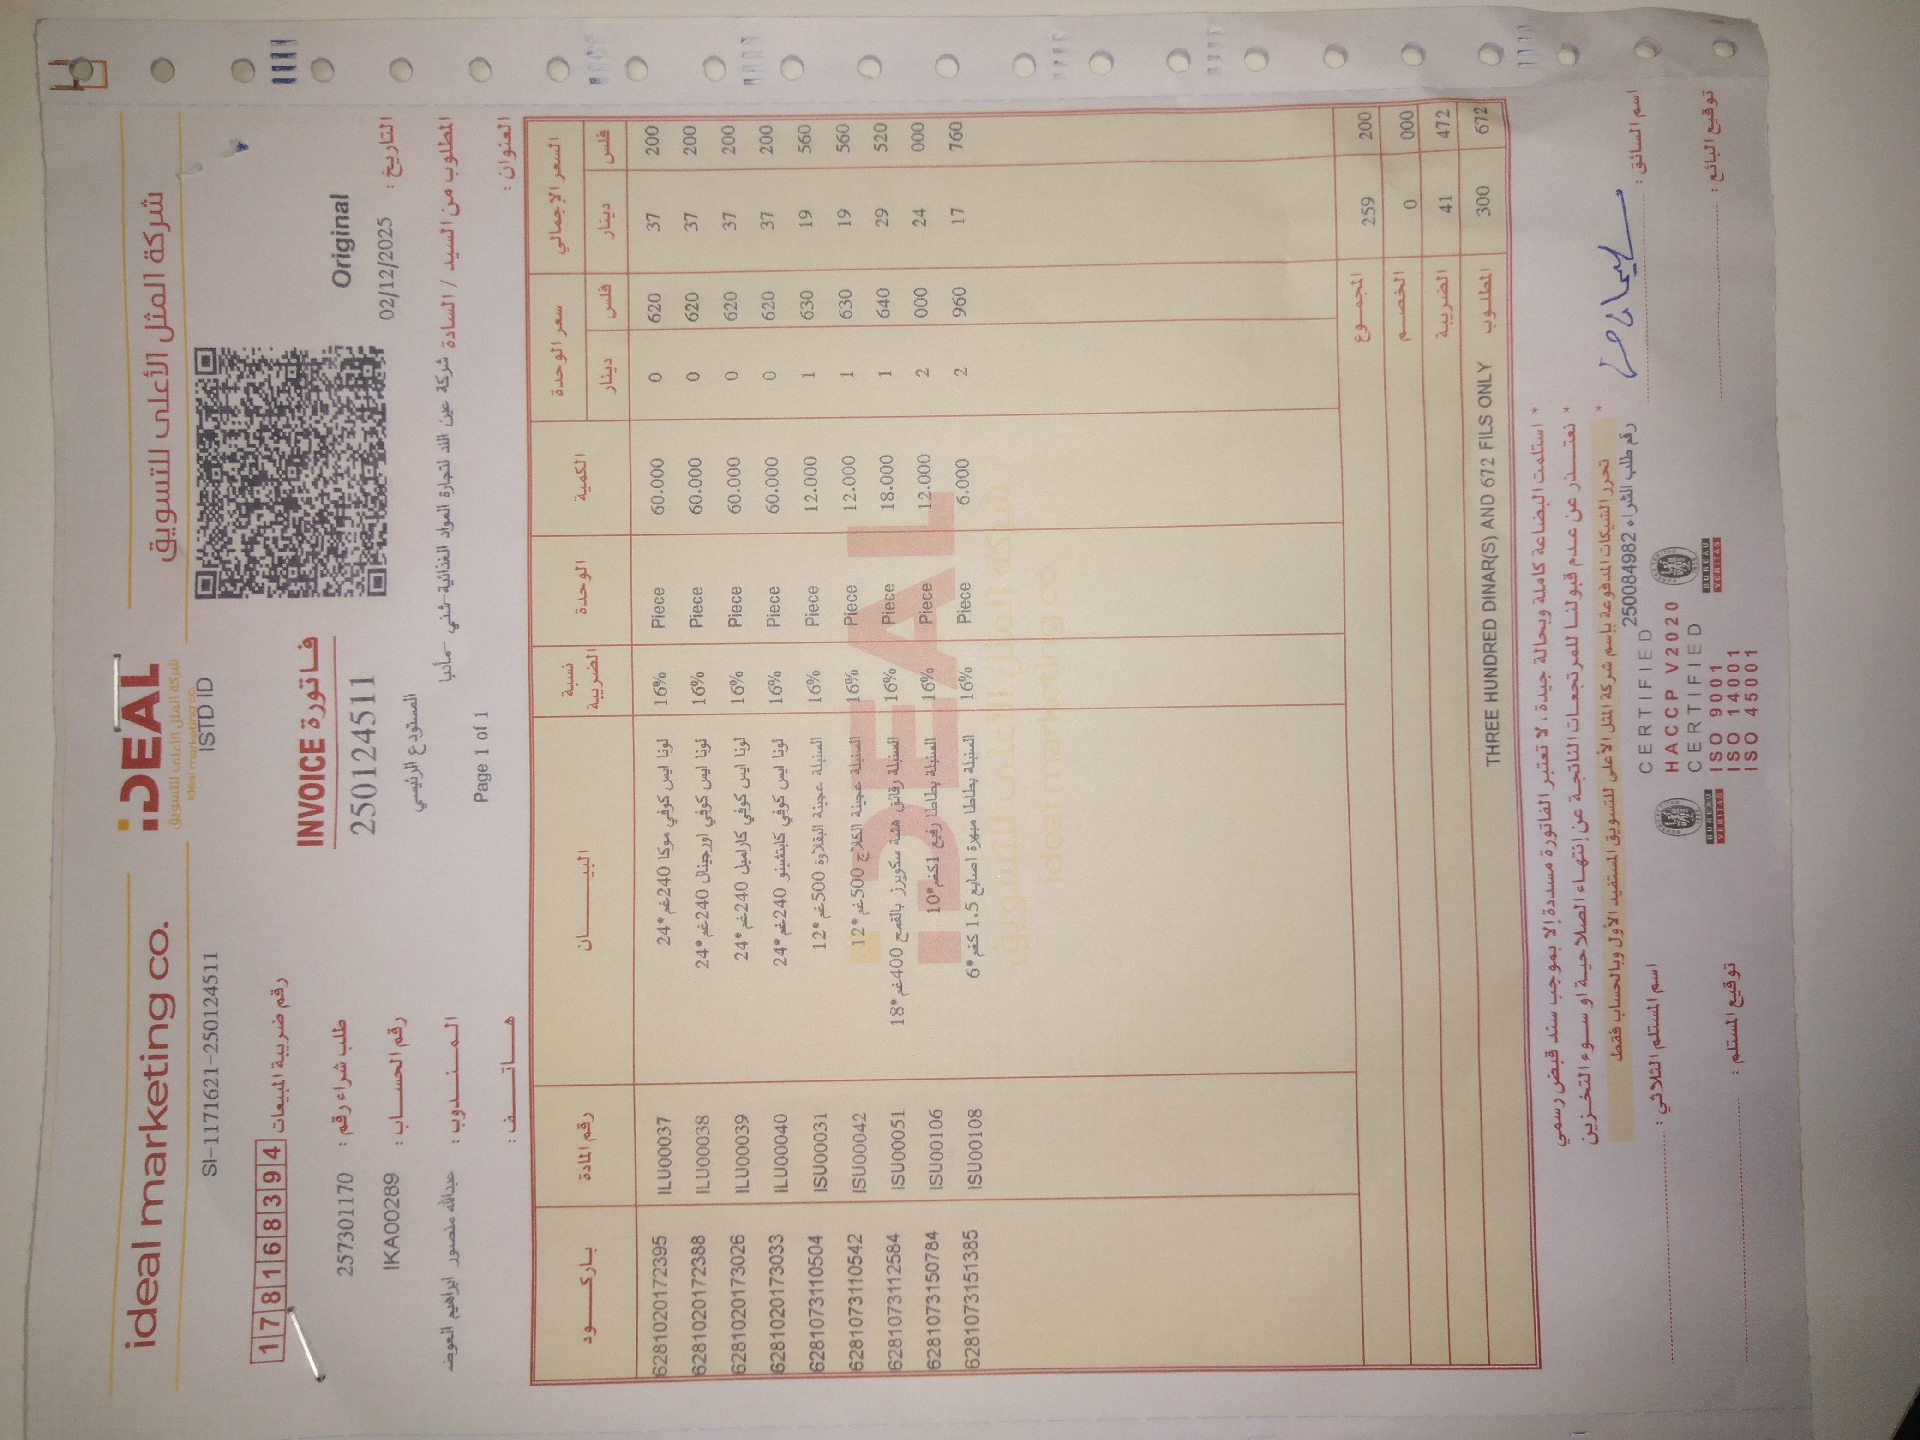 ideal marketing co.
iDEAL
شركة المثل الأعلى للتسويق
ideal marketing co.
شركة المثل الأعلى للتسويق
SI-1171621-250124511
ISTD ID
17816839 4 رقم ضريبة المبيعات
INVOICE فاتورة
Original
250124511
طلب شراء رقم : 257301170
رقم الحساب : IKA00289
المستودع الرئيسي
التاريخ : 02/12/2025
المندوب : عبدالله منصور ابراهيم العوضه
المطلوب من السيد / السادة شركة عين اللذ لتجارة المواد الغذائية-شني -مأدبا
هاتف :
Page 1 of 1
العنوان :
باركود رقم المادة البيان نسبة الضريبة الوحدة الكمية سعر الوحدة السعر الإجمالي
دينار فلس دينار فلس
6281020172395 ILU00037 لونا ايس كوفي موكا 240غم*24 16% Piece 60.000 0 620 37 200
6281020172388 ILU00038 لونا ايس كوفي اورجينال 240غم*24 16% Piece 60.000 0 620 37 200
6281020173026 ILU00039 لونا ايس كوفي كاراميل 240غم*24 16% Piece 60.000 0 620 37 200
6281020173033 ILU00040 لونا ايس كوفي كابتشينو 240غم*24 16% Piece 60.000 0 620 37 200
6281073110504 ISU00031 السنبلة عجينة البقلاوة 500غم*12 16% Piece 12.000 1 630 19 560
6281073110542 ISU00042 السنبلة عجينة الكلاج 500غم*12 16% Piece 12.000 1 630 19 560
6281073112584 ISU00051 السنبلة رقائق هشة سكويرز بالقمح 400غم*18 16% Piece 18.000 1 640 29 520
6281073150784 ISU00106 السنبلة بطاطا رفيع 1كغم*10 16% Piece 12.000 2 000 24 000
6281073151385 ISU00108 السنبلة بطاطا مبهرة اصابع 1.5 كغم*6 16% Piece 6.000 2 960 17 760
iDEAL
شركة المثل الأعلى للتسويق
ideal marketing co.
المجموع 259 200
الخصم 0 000
الضريبة 41 472
THREE HUNDRED DINAR(S) AND 672 FILS ONLY المطلوب 300 672
* استلمت البضاعة كاملة وبحالة جيدة ، لا تعتبر الفاتورة مسددة إلا بموجب سند قبض رسمي
* نعتذر عن عدم قبولنا للمرتجعات الناتجة عن إنتهاء الصلاحية او سوء التخزين
* تحرر الشيكات المدفوعة بإسم شركة المثل الأعلى للتسويق المستفيد الأول وبالحساب فقط
رقم طلب الشراء 250084982
اسم المستلم الثلاثي :
اسم السائق :
توقيع المستلم :
توقيع البائع :
CERTIFIED
HACCP V2020
CERTIFIED
ISO 9001
ISO 14001
ISO 45001
BUREAU VERITAS
BUREAU VERITAS